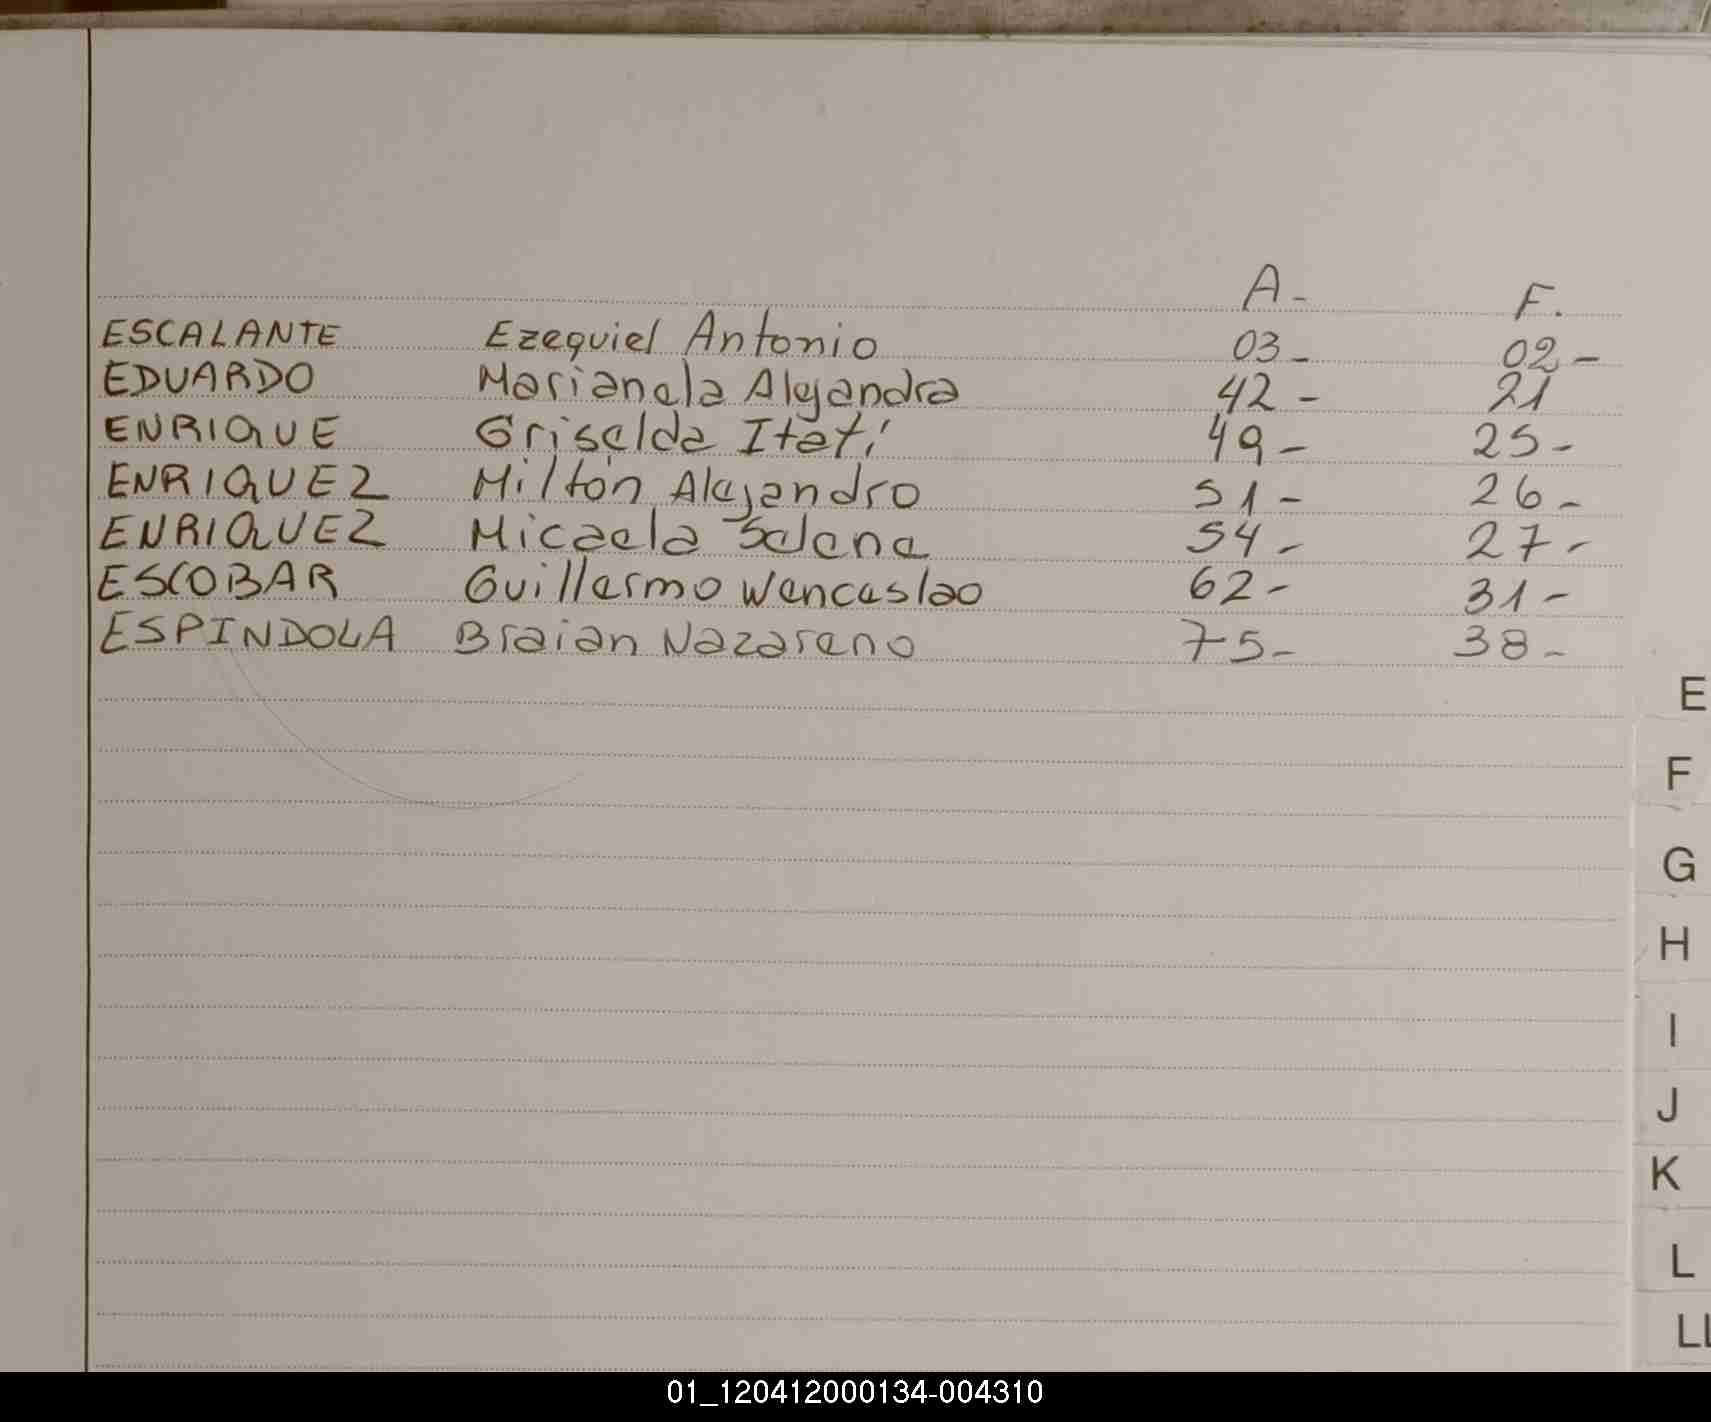 A - F.
ESCALANTE Ezequiel Antonio 03 - 02 -
EDUARDO Marianela Alejandra 42 - 21
ENRIQUE Griselda Itatí 49 - 25 -
ENRIQUEZ Milton Alejandro 51 - 26 -
ENRIQUEZ Micaela Selene 54 - 27 -
ESCOBAR Guillermo Wenceslao 62 - 31 -
ESPINDOLA Braian Nazareno 75 - 38 -
E
F
G
H
I
J
K
L
LL
01_120412000134-004310